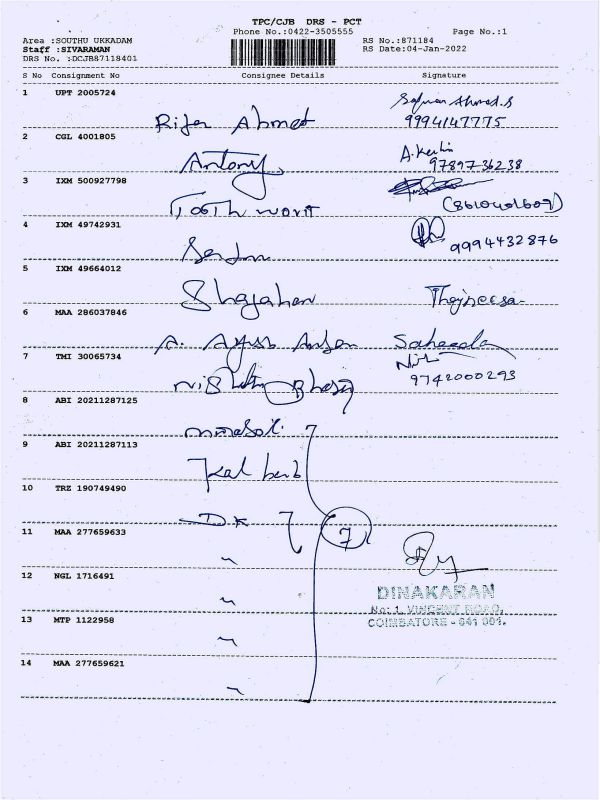 TPC/CJB DRS - PCT
Phone No.:0422-3505555 Page No.:1
Area :SOUTHU UKKADAM RS No.:871184
Staff :SIVARAMAN RS Date:04-Jan-2022
DRS No. :DCJB87118401
S No Consignment No Consignee Details Signature
1 UPT 2005724
Ahmed.S
9994147775
Ahmed
2 CGL 4001805
A.
9789736238
Antony
3 IXM 500927798
Tooth
4 IXM 49742931
9994432876
5 IXM 49664012
Shajahan
6 MAA 286037846
A.
7 TMI 30065734
9742000293
8 ABI 20211287125
9 ABI 20211287113
10 TRZ 190749490
DK
7
11 MAA 277659633
12 NGL 1716491
DINAKARAN
No: 1, VINCENT ROAD,
COIMBATORE - 641 001.
13 MTP 1122958
14 MAA 277659621